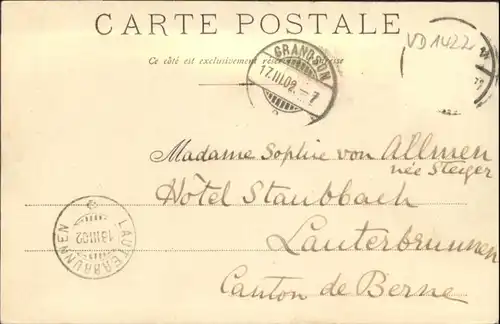 CARTE POSTALE
Ce côté est exclusivement réservé à l'adresse
VD 1422
GRANDSON
17.III.02.-7
Madame Sophie von Allmen
née Steiger
Hôtel Staubbach
Lauterbrunnen
Canton de Berne
LAUTERBRUNNEN
18.III.02